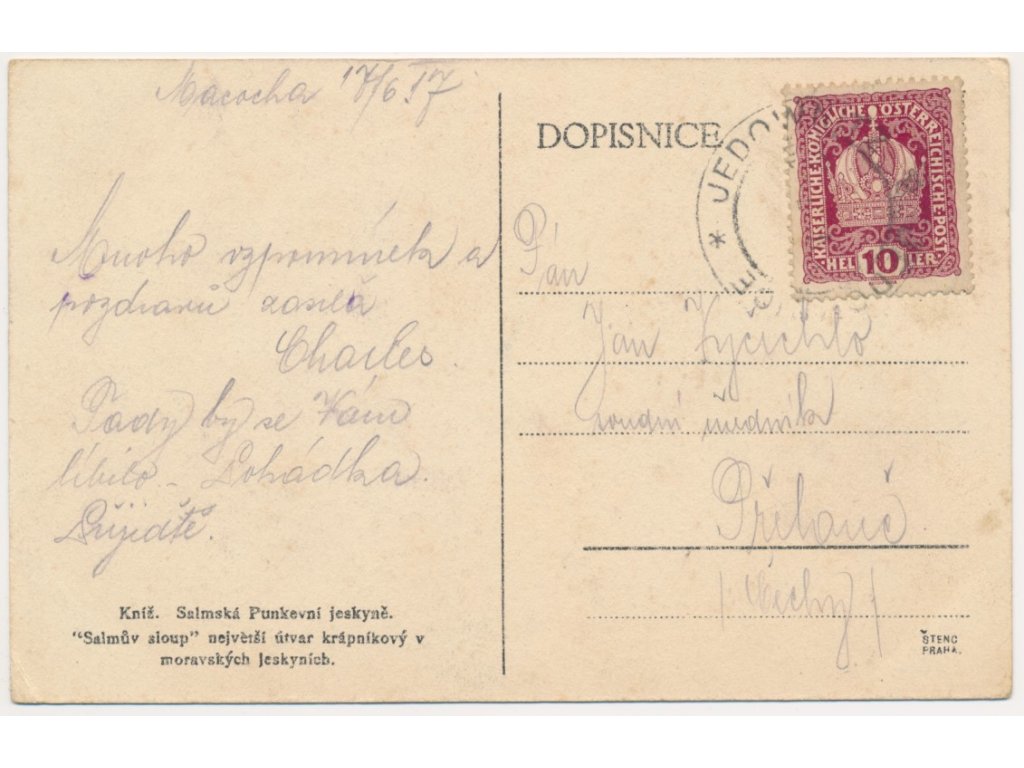 Macocha 17/6 17
Mnoho vzpomínek a
pozdravů zasílá
Charles.
Tady by se Vám
líbilo - Pohádka.
Přijďte.
Kníž. Salmská Punkevní jeskyně.
"Salmův sloup" největší útvar krápníkový v
moravských jeskyních.
DOPISNICE
* JEDOW
KAISERLICHE·KÖNIGLICHE ÖSTERREICHISCHE·POST
HELLER
10
Pán
Jan
soudní úředník
/Čechy/
ŠTENC
PRAHA.